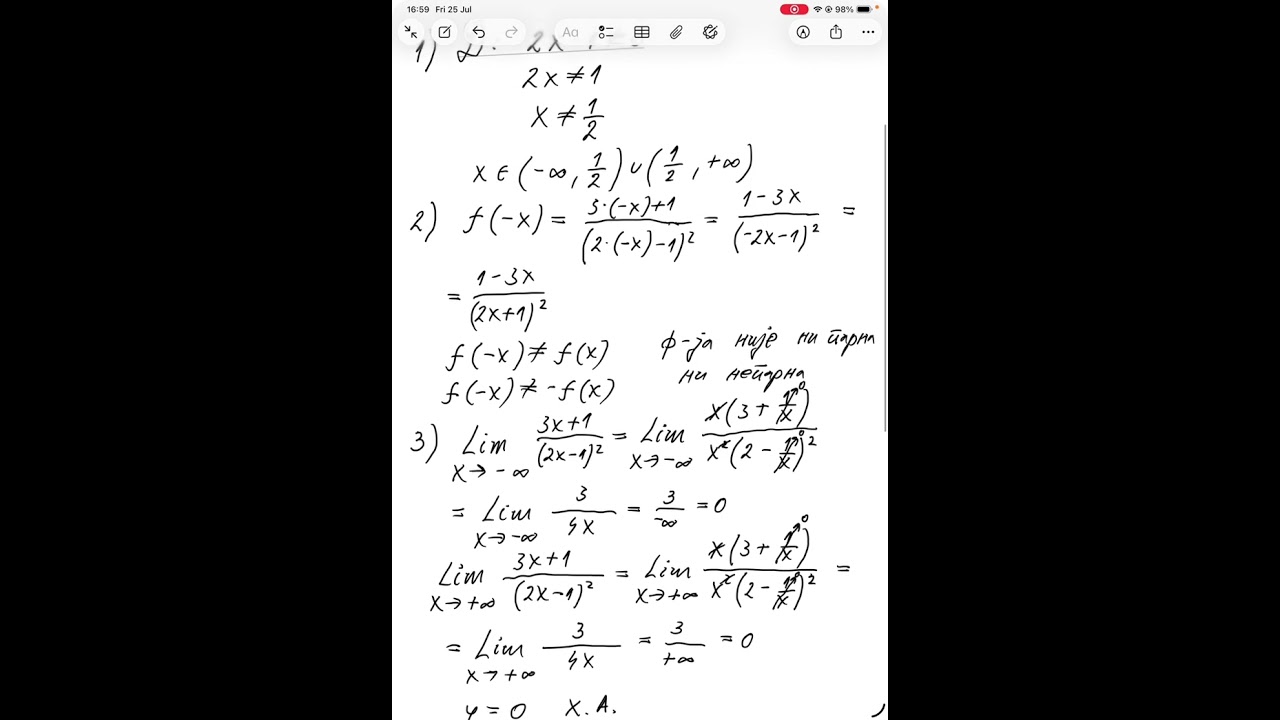 16:59 Fri 25 Jul 98%
Aa
1) D: 2x
2x ≠ 1
x ≠ 1/2
x ∈ (-∞, 1/2) ∪ (1/2, +∞)
2) f(-x) = (3·(-x)+1)/(2·(-x)-1)² = (1-3x)/(-2x-1)² =
= (1-3x)/(2x+1)²
f(-x) ≠ f(x) ф-ја није ни парна
f(-x) ≠ -f(x) ни непарна
3) Lim x→-∞ (3x+1)/(2x-1)² = Lim x→-∞ x(3+1/x)/x²(2-1/x)²
= Lim x→-∞ 3/4x = 3/-∞ = 0
Lim x→+∞ (3x+1)/(2x-1)² = Lim x→+∞ x(3+1/x)/x²(2-1/x)² =
= Lim x→+∞ 3/4x = 3/+∞ = 0
y = 0 X.A.